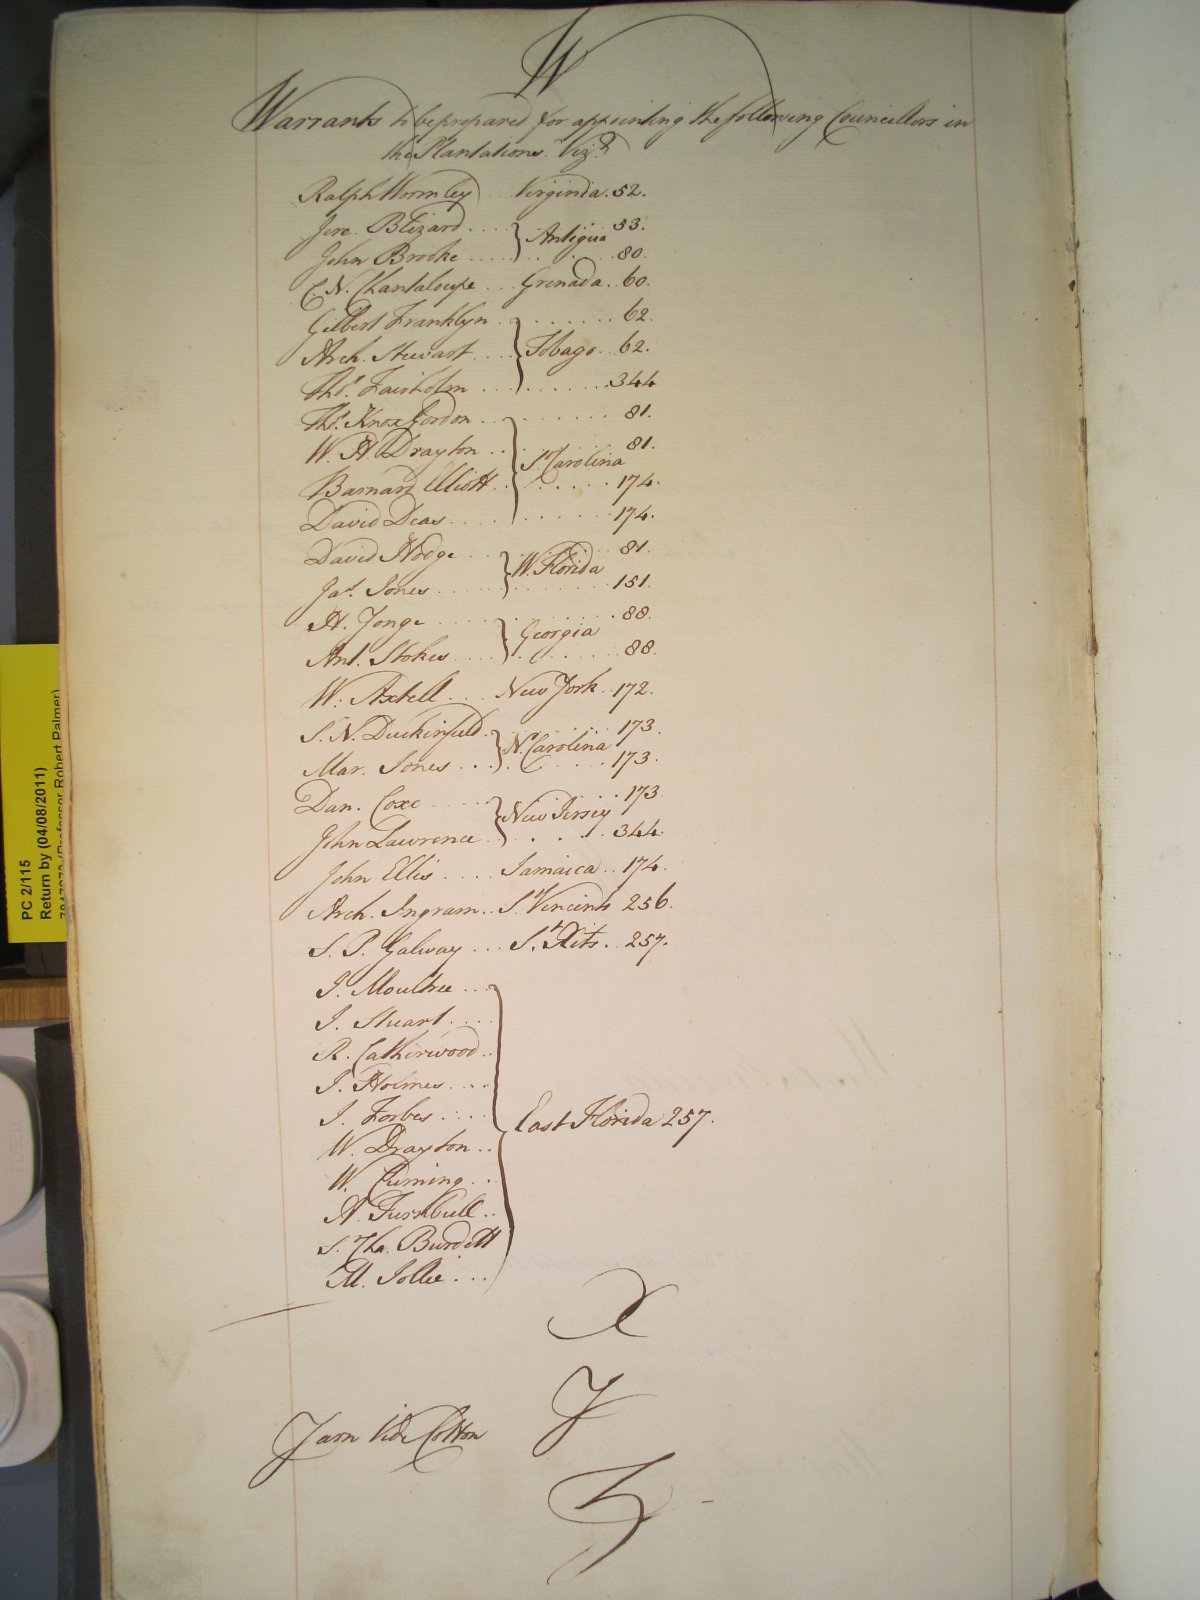 W
Warrants to be prepared for appointing the following Councillors in
the Plantations. Vizt.
Ralph Wormley ... Virginia. 52.
Jere. Blizard .... 53.
Antigua
John Brooke ..... 80.
C. N. Chantaloupe ... Grenada .. 60.
Gilbert Franklyn ....... 62.
Arch. Stewart .... Tobago .. 62.
Thos. Fairholm ........ 344
Thos. Knox Gordon ....... 81.
W. H. Drayton ....... 81.
So. Carolina
Barnard Elliott ....... 174.
David Deas .......... 174.
David Hodge ....... 81.
W. Florida
Jas. Jones ........ 151.
H. Yonge ......... 88.
Georgia
Ant. Stokes ........ 88.
W. Axtell ... New York .. 172.
S. N. Duckinfield ...... 173.
N. Carolina
Mar. Jones ....... 173.
Dan. Coxe ....... 173
New Jersey
John Lawrence ..... 344.
John Ellis .... Jamaica .. 174.
Arch. Ingram .. St. Vincents 256.
S. P. Galway ... St. Kits. 257.
J. Moultrie ...
J. Stuart ....
R. Catherwood ..
J. Holmes ....
J. Forbes ....
East Florida 257.
W. Drayton ..
W. Cuming ...
A. Turnbull ..
S. Cha. Burdett
M. Jollie ...
X
Y
Yarn Vide Cotton
Z
PC 2/115
Return by (04/08/2011)
(Professor Robert Palmer)